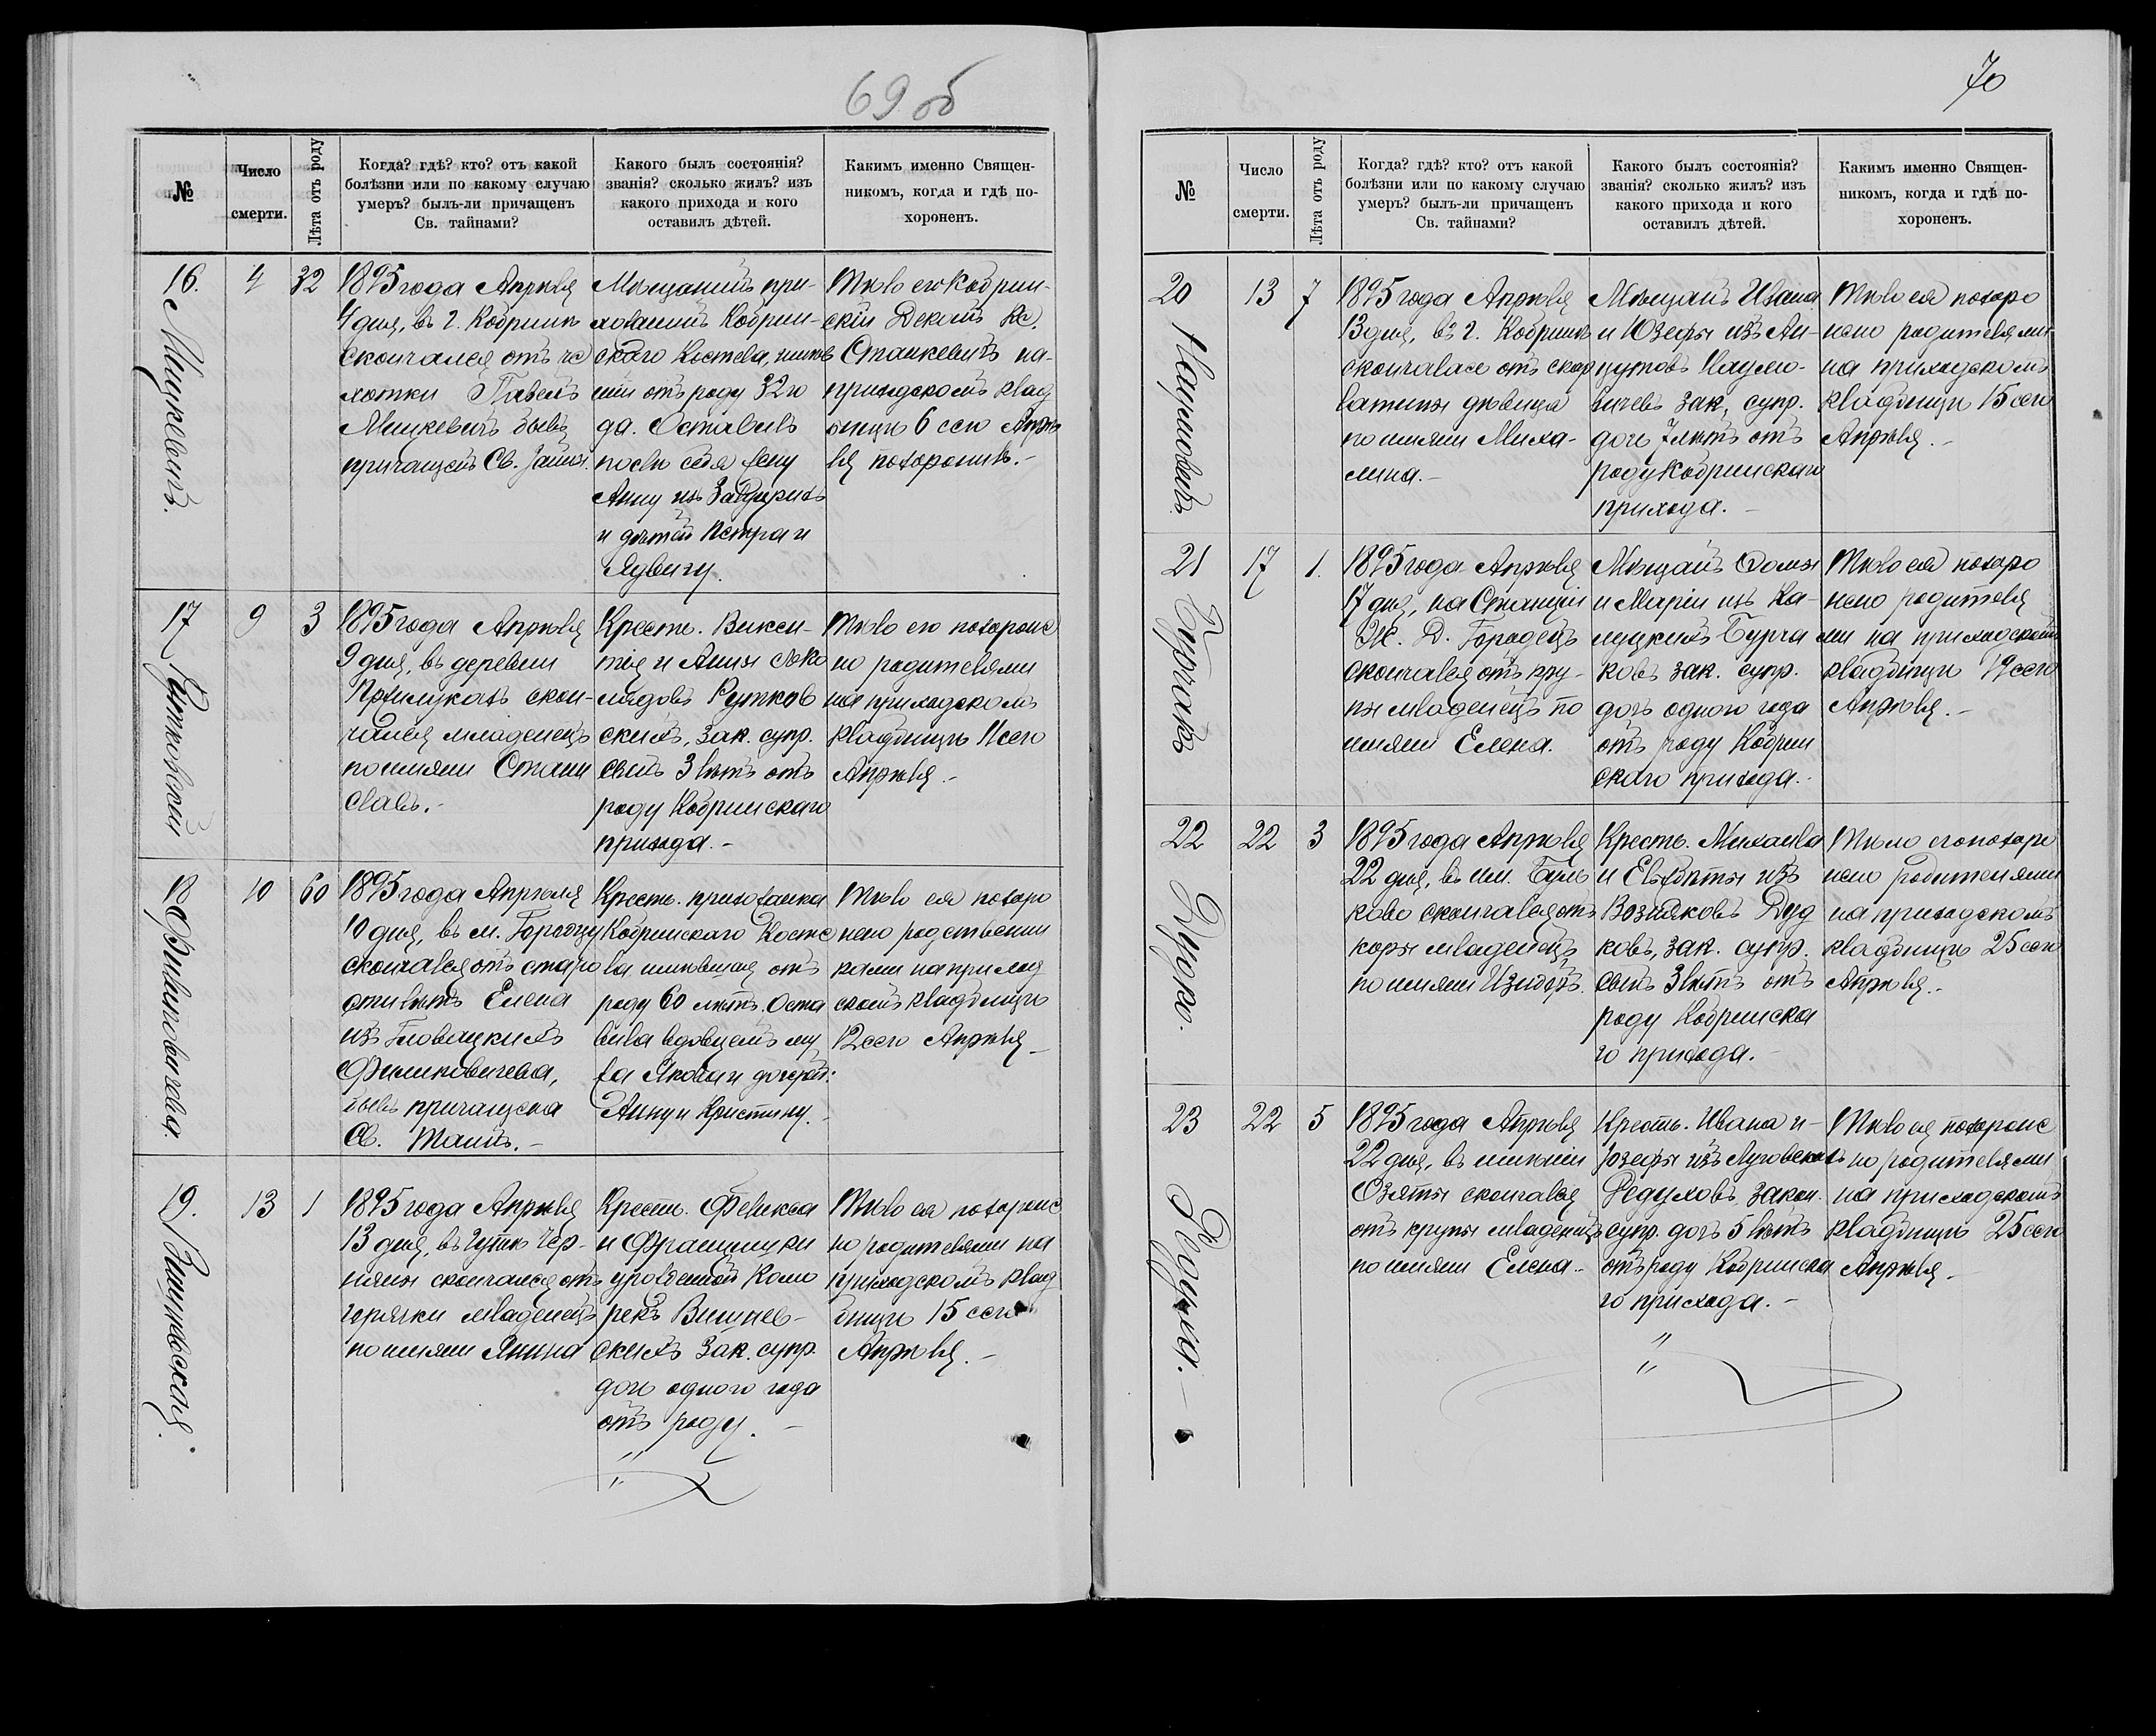 69 об
№
Число
смерти.
Лѣта отъ роду
Когда? гдѣ? кто? отъ какой
болѣзни или по какому случаю
умеръ? былъ-ли причащенъ
Св. тайнами?
Какого былъ состоянія?
званія? сколько жилъ? изъ
какого прихода и кого
оставилъ дѣтей.
Какимъ именно Священ-
никомъ, когда и гдѣ по-
хороненъ.
16.
Мицкевичъ.
4
32
1895 года Апрѣля
4 дня, въ г. Кобринѣ
скончался отъ ча
хотки Павелъ
Мицкевичъ бывъ
причащенъ Св. Тайн.
Мѣщанинъ при-
хожанинъ Кобрин-
скаго Костела, имѣв
шій отъ роду 32 го
да. Оставивъ
послѣ себя жену
Анну изъ
и дѣтей Петра и
Ядвигу.
Тѣло его Кобрин-
скій Деканъ Кс.
Станкевичъ на
приходскомъ клад
бищѣ 6 сего Апрѣ
ля похоронилъ.-
17
Рутковскій
9
3
1895 года Апрѣля
9 дня, въ деревни
Прилукахъ скон-
чался младенецъ
по имени Стани
славъ.-
Кресть. Викен-
тія и Анны Соко
ловъ Рутков
скихъ, зак. супр.
сынъ 3 лѣтъ отъ
роду Кобринскаго
прихода.-
Тѣло его похороне
но родителями
на приходскомъ
кладбищѣ 11 сего
Апрѣля.-
18
Филиповичева.
10
60
1895 года Апрѣля
10 дня, въ м. Городцу
скончался отъ старо
сти лѣтъ Елена
изъ Гловацкихъ
Филиповичева,
бывъ причащена
Св. Таинъ.-
Кресть. прихожанка
Кобринскаго Косте
ла имѣвшая отъ
роду 60 лѣтъ. Оста
вила вдовцемъ му
жа Якова и дочерей:
Анну и Кристину.-
Тѣло ея похоро
нено родственни
ками на приход
скомъ кладбищѣ
12 сего Апрѣля-
19.
Вишневская.
13
1
1895 года Апрѣля
13 дня, въ Гутѣ Чер-
няны скончался отъ
горячки младенецъ
по имени Янина
Кресть. Феликса
и Францишки
урожденной Комо
рекъ Вишнев-
скихъ зак. супр.
дочь одного года
отъ роду.-
Тѣло ея похороне
но родителями на
приходскомъ клад
бищѣ 15 сего
Апрѣля.-
70
№
Число
смерти.
Лѣта отъ роду
Когда? гдѣ? кто? отъ какой
болѣзни или по какому случаю
умеръ? былъ-ли причащенъ
Св. тайнами?
Какого былъ состоянія?
званія? сколько жилъ? изъ
какого прихода и кого
оставилъ дѣтей.
Какимъ именно Священ-
никомъ, когда и гдѣ по-
хороненъ.
20
13
7
1895 года Апрѣля
13 дня, въ г. Кобринѣ
скончалась отъ скар
латины дѣвица
по имени Миха-
лина.-
Мѣщанъ Ивана
и Юзефы изъ
зак. супр.
дочь 7 лѣтъ отъ
роду Кобринскаго
прихода.-
Тѣло ея похоро
нено родителями
на приходскомъ
кладбищѣ 15 сего
Апрѣля.-
21
Бурчакъ
17
1.
1895 года Апрѣля
17 дня, на Станціи
Ж. Д. Городецъ
скончался отъ кру-
пы младенецъ по
имени Елена.
Мѣщанъ Фомы
и Маріи изъ Ка-
луцкихъ Бурча
ковъ зак. супр.
дочь одного года
отъ роду Кобрин
скаго прихода.-
Тѣло ея похоро
нено родителя
ми на приходскомъ
кладбищѣ 19 сего
Апрѣля.-
22
Дудко.
22
3
1895 года Апрѣля
22 дня, въ им. Буль
ково скончался отъ
коры младенецъ
по имени Изидоръ.
Кресть. Михаила
и изъ
Возняковъ Дуд
ковъ, зак. супр.
сынъ 3 лѣтъ отъ
роду Кобринска
го прихода.-
Тѣло его похоро
нено родителями
на приходскомъ
кладбищѣ 25 сего
Апрѣля.-
23
Редуха.-
22
5
1895 года Апрѣля
22 дня, въ имѣніи
Озяты скончался
отъ крупы младенецъ
по имени Елена.-
Кресть. Ивана и-
Юзефы изъ Луговскихъ
Редуховъ, закон.
супр. дочь 5 лѣтъ
отъ роду Кобринска
го прихода.-
Тѣло ея похороне
но родителями
на приходскомъ
кладбищѣ 25 сего
Апрѣля.-